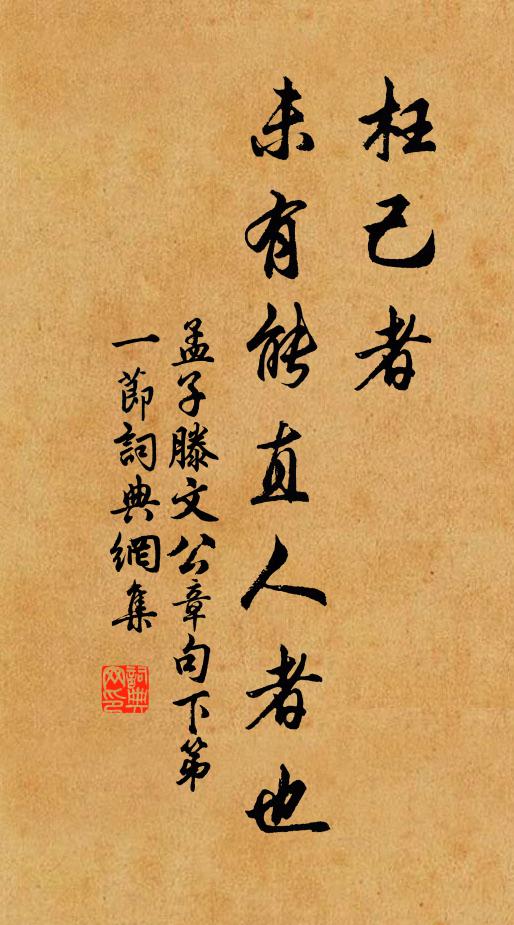 枉己者
未有能直人者也
孟子滕文公章句下第
一節詞典網集
詞典
网印